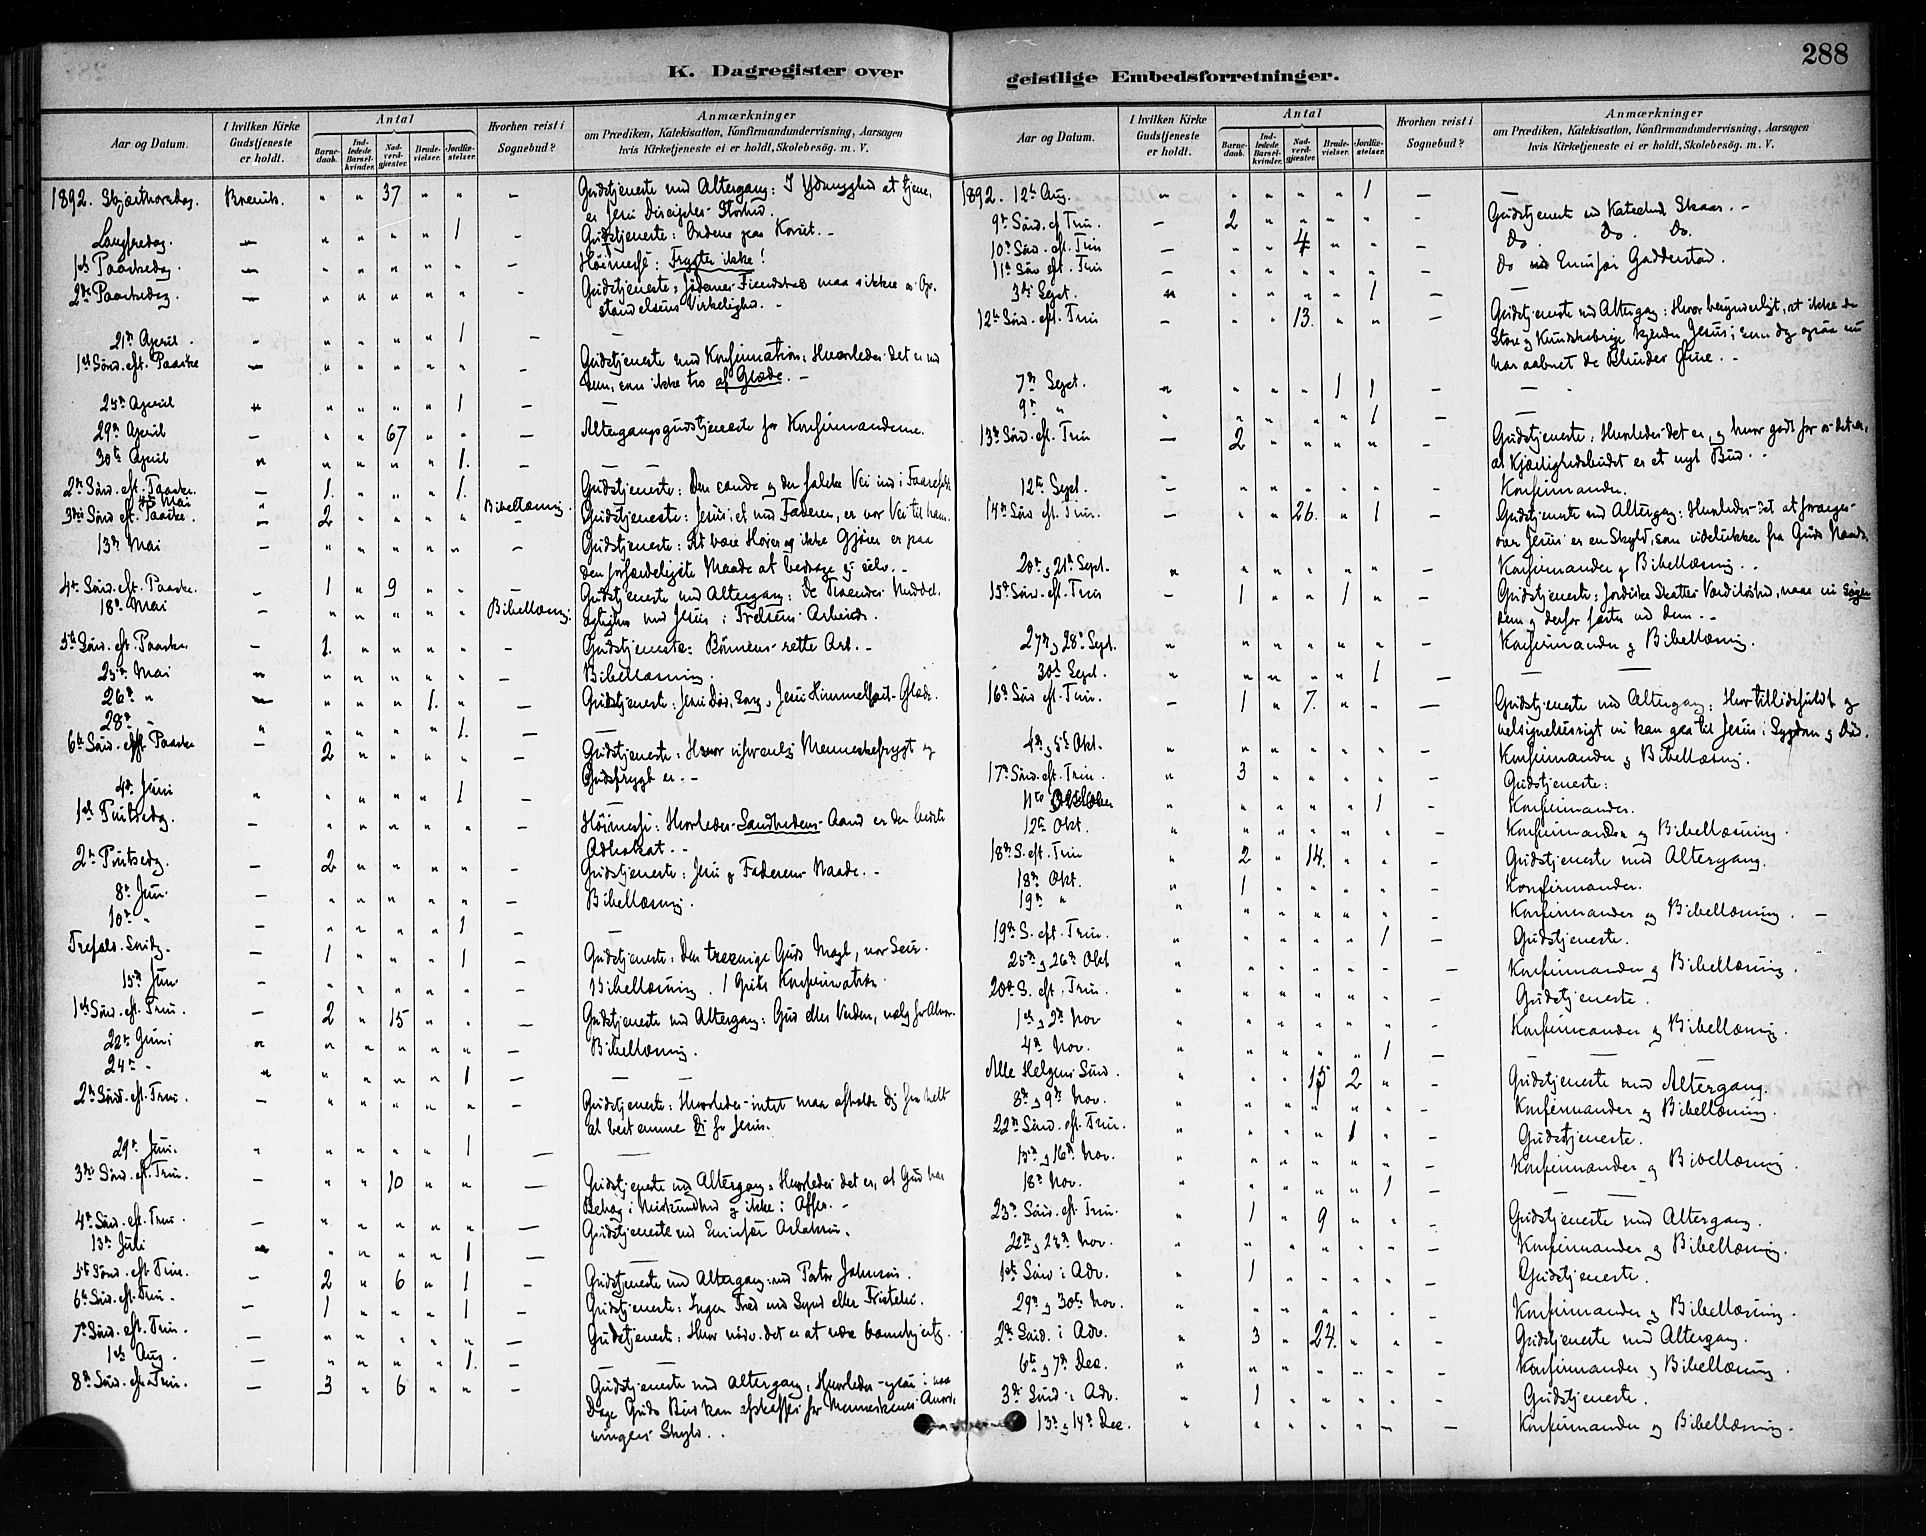 288
K. Dagregister over
geistlige Embedsforretninger.
Aar og Datum.
I hvilken Kirke Gudstjeneste er holdt.
Antal
Barne-daab.
Ind-ledede Barsel-kvinder.
Nad-verd-gjæster.
Brude-vielser.
Jordfæ-stelser.
Hvorhen reist i Sognebud?
Anmærkninger
om Prædiken, Katekisation, Konfirmandundervisning, Aarsagen
hvis Kirketjeneste ei er holdt, Skolebesög. m. V.
1892. Skjærthorsdag. Brevik. " " 37 " " — Gudstjeneste med Altergang: I Ydmyghed at tjene,
er Jesu Disciples Storhed.
Langfredag. — " " " " 1 — Gudstjeneste: Ordene paa Korset. —
1ste Paaskedag. — " " " " " — Höimesse: Frygter ikke!
2den Paaskedag. — " " " " " — Gudstjeneste: Jödernes Fiendskab maa sikre os Op-
standelsens Virkelighed. —
21de April " " " " " 1 — —
1ste Sönd. eft. Paaske — " " " " " — Gudstjeneste med Konfirmation: Hvorledes det er ved
dem, som ikke tro af Glæde. —
25de April " " " " " 1 — —
29de April — " " 67 " " — Altergangsgudstjeneste for Konfirmanderne.
30te April " " " " " 1. — —
2den Sönd. eft. Paaske. — 1. " " " 1. — Gudstjeneste: Den sande og den falske Vei ind i Faarefolden
4de Mai Bibellæsning.
3die Sönd. eft. Paaske. — 2 " " " " — Gudstjeneste: Jesus, et med Faderen, er vor Vei til ham.
13de Mai — " " " " " — Gudstjeneste: At være Hörer og ikke Gjörer er paa
den forfærdeligste Maade at bedrage sig selv. —
4de Sönd. eft. Paaske. — 1 " 9 " " — Gudstjeneste med Altergang: De Troendes Meddel-
18de Mai — " " " " " Bibellæsning. agtighed med Jesus i Frelsens Arbeide.
5te Sönd. eft. Paaske — 1. " " " " — Gudstjeneste: Bönnens rette Art. —
25de Mai " " " " " " — Bibellæsning.
26de " — " " " 1. " — Gudstjeneste: Jesu Död, Sorg, Jesu Himmelfart, Glæde.
28de " " " " " " 1. —
6te Sönd. eft. Paaske — 2 " " " " — Gudstjeneste: Hvor uforenlig Menneskefrygt og
Gudsfrygt er. —
4de Juni " " " " " 1 — —
1ste Pintsedag. — " " " " " — Höimesse: Hvorledes Sandhedens Aand er den bedste
Advokat. —
2den Pintsedag. — 2 " " " " — Gudstjeneste: Jesu og Faderens Naade. —
8de Juni — " " " " " — Bibellæsning.
10de " — " " " " 1 — —
Trefold. Sönd. — 1 " " " 1 — Gudstjeneste: Den treenige Guds Magt, vor Seir.
15de Juni — " " " " " — Bibellæsning. 1 Privat Konfirmation.
1ste Sönd. eft. Trin. — 2 " 15 " " — Gudstjeneste med Altergang: Gud eller Verden, vælg for Alvor.
22de Juni " " " " " " — Bibellæsning.
24de " " " " " " 1 — —
2den Sönd. eft. Trin. — " " " " " — Gudstjeneste: Hvorledes intet maa afholde dig fra helt
at bestemme Di for Jesus.
29de Juni. " " " " " 1 — —
3die Sönd. eft. Trin. " " " 10 " " — Gudstjeneste med Altergang: Hvorledes det er, at Gud har
Behag i Miskundhed og ikke i Offer. —
4de Sönd. eft. Trin. — " " " " " — Gudstjeneste ved Emissær Aslaksen.
13de Juli " " " " " 1 —
5te Sönd. eft. Trin. — 2 " 6 " 1 — Gudstjeneste med Altergang ved Pastor Johnson.
6te Sönd. eft. Trin. — 1 " " " 1 — Gudstjeneste: Ingen Fred ved Synd eller Fristelse.
7de Sönd. eft. Trin. — " " " " " — Gudstjeneste: Hvor nödv. det er at være barmhjertig.
1ste Aug. — " " " " 1. — —
8de Sönd. eft. Trin. — 3 " 6 " " — Gudstjeneste med Altergang: Hvorledes ogsaa i vore
Dage Guds Bud kan afskaffes for Menneskenes Anord-
ningers Skyld.
Aar og Datum.
I hvilken Kirke Gudstjeneste er holdt.
Antal
Barne-daab.
Ind-ledede Barsel-kvinder.
Nad-verd-gjæster.
Brude-vielser.
Jordfæ-stelser.
Hvorhen reist i Sognebud?
Anmærkninger
om Prædiken, Katekisation, Konfirmandundervisning, Aarsagen
hvis Kirketjeneste ei er holdt, Skolebesög. m. V.
1892. 12te Aug. " " " " " 1 — —
9de Sönd. ef. Trin. — 2 " " " " Gudstjeneste ved Katechet Skaar. —
10de Sönd. eft. Trin — " " 4 " " — Do. Do. Do.
11te Sön eft. Trin — " " " " " Do ved Emissær Gadderstad.
3die Sept. " " " " " 1 — —
12te Sönd. eft. Trin — " " 13. " " — Gudstjeneste med Altergang: Hvor begynderligt, at ikke de
Store og Kundskabsrige kjender Jesus, som dog ogsaa nu
har aabnet de Blindes Öine. —
7de Sept. " " " " 1 1 — —
9de " " " " " " 1 — —
13de Sönd. eft. Trin — 2 " " " " — Gudstjeneste: Hvorledes det er, og hvor godt for os det er,
at Kjærlighedsbudet er et nyt Bud.
12te Sept. — " " " " " — Konfirmander.
14de Sönd eft. Trin. — " " 26. " 1 — Gudstjeneste med Altergang: Hvorledes det at forarges
over Jesus er en Skyld, som udelukker fra Guds Naade.
20de og 21de Sept. " " " " " " — Konfirmander og Bibellæsning.
15de Sönd. eft. Trin — 1 " " 1 " — Gudstjeneste: Jordiske Skattes Værdilöshed, naar vi söger
dem og derfor fæster ved dem. —
27de og 28de Sept. " " " " " " — Konfirmander og Bibellæsning.
30te Sept. " " " " " 1 — —
16de Sönd eft. Trin. — 1 " 7. " " — Gudstjeneste med Altergang: Hvor tillidsfuldt og
velsignelsesrigt vi kan gaa til Jesus i Sygdom og Död.
4de og 5te Okt. " " " " " " — Konfirmander og Bibellæsning.
17de Sönd. eft. Trin. " 3 " " " " — Gudstjeneste:
11te Oktober " " " " " 1 — Konfirmander.
12te Okt. " " " " " " — Konfirmander og Bibellæsning.
18de S. eft. Trin " 2 " 14. " " — Gudstjeneste med Altergang.
18de Okt. " 1 " " " " — Konfirmander.
19de " " " " " " " — Konfirmander og Bibellæsning. —
19de S. eft. Trin. " " " " " 1 — Gudstjeneste.
25de og 26de Okt " " " " " " — Konfirmander og Bibellæsning.
20de S. eft. Trin. " " " " " " — Gudstjeneste.
1ste og 2den Nov " " " " " " — Konfirmander og Bibellæsning.
4de Nov. " " " " " 1 — —
Alle Helgens Sönd. " " " 15 2 " — Gudstjeneste med Altergang.
8de og 9de Nov. " " " " " " — Konfirmander og Bibellæsning.
22de Sönd. eft. Trin. " " " " 1 " — Gudstjeneste.
15de og 16de Nov. " " " " " " — Konfirmander og Bibellæsning.
18de Nov. " " " " " 1 — —
23de Sönd. eft. Trin. " 1 " 9 " " — Gudstjeneste med Altergang.
22de og 23de Nov. " " " " " " — Konfirmander og Bibellæsning.
1ste Sönd i Adv. " 1 " " " " — Gudstjeneste.
29de og 30te Nov. " " " " " " — Konfirmander og Bibellæsning.
2den Sönd. i Adv. " 3 " 24. " " — Gudstjeneste med Altergang.
6te og 7de Dec. " " " " " " — Konfirmander og Bibellæsning.
3die Sönd i Adv. " 1 " " " " — Gudstjeneste.
13de og 14de Dec. " " " " " " — Konfirmander og Bibellæsning.